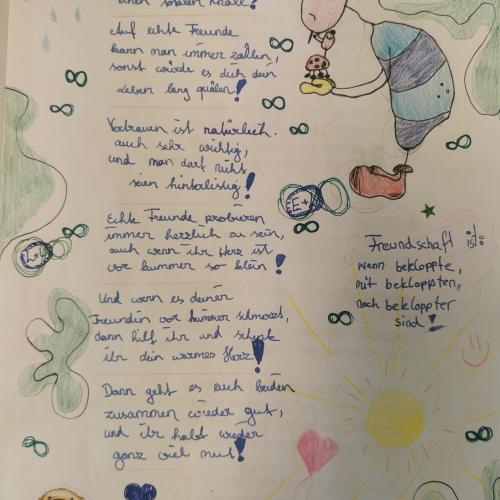 einen totalen Knall!
Auf echte Freunde
kann man immer zählen,
sonst würde es dich dein
Leben lang quälen!
Vertrauen ist natürlich
auch sehr wichtig,
und man darf nicht
seien hinterlistig!
Echte Freunde probieren
immer herzlich zu sein,
auch wenn ihr Herz ist
vor kummer so klein!
Und wenn es deiner
Freundin vor kummer schmerzt,
dann hilf ihr und schenk
ihr dein warmes Herz!
Dann geht es euch beiden
zusammen wieder gut,
und ihr habt wieder
ganz viel mut!
E+
Freundschaft ist:
wenn bekloppte,
mit bekloppten,
noch bekloppter
sind!